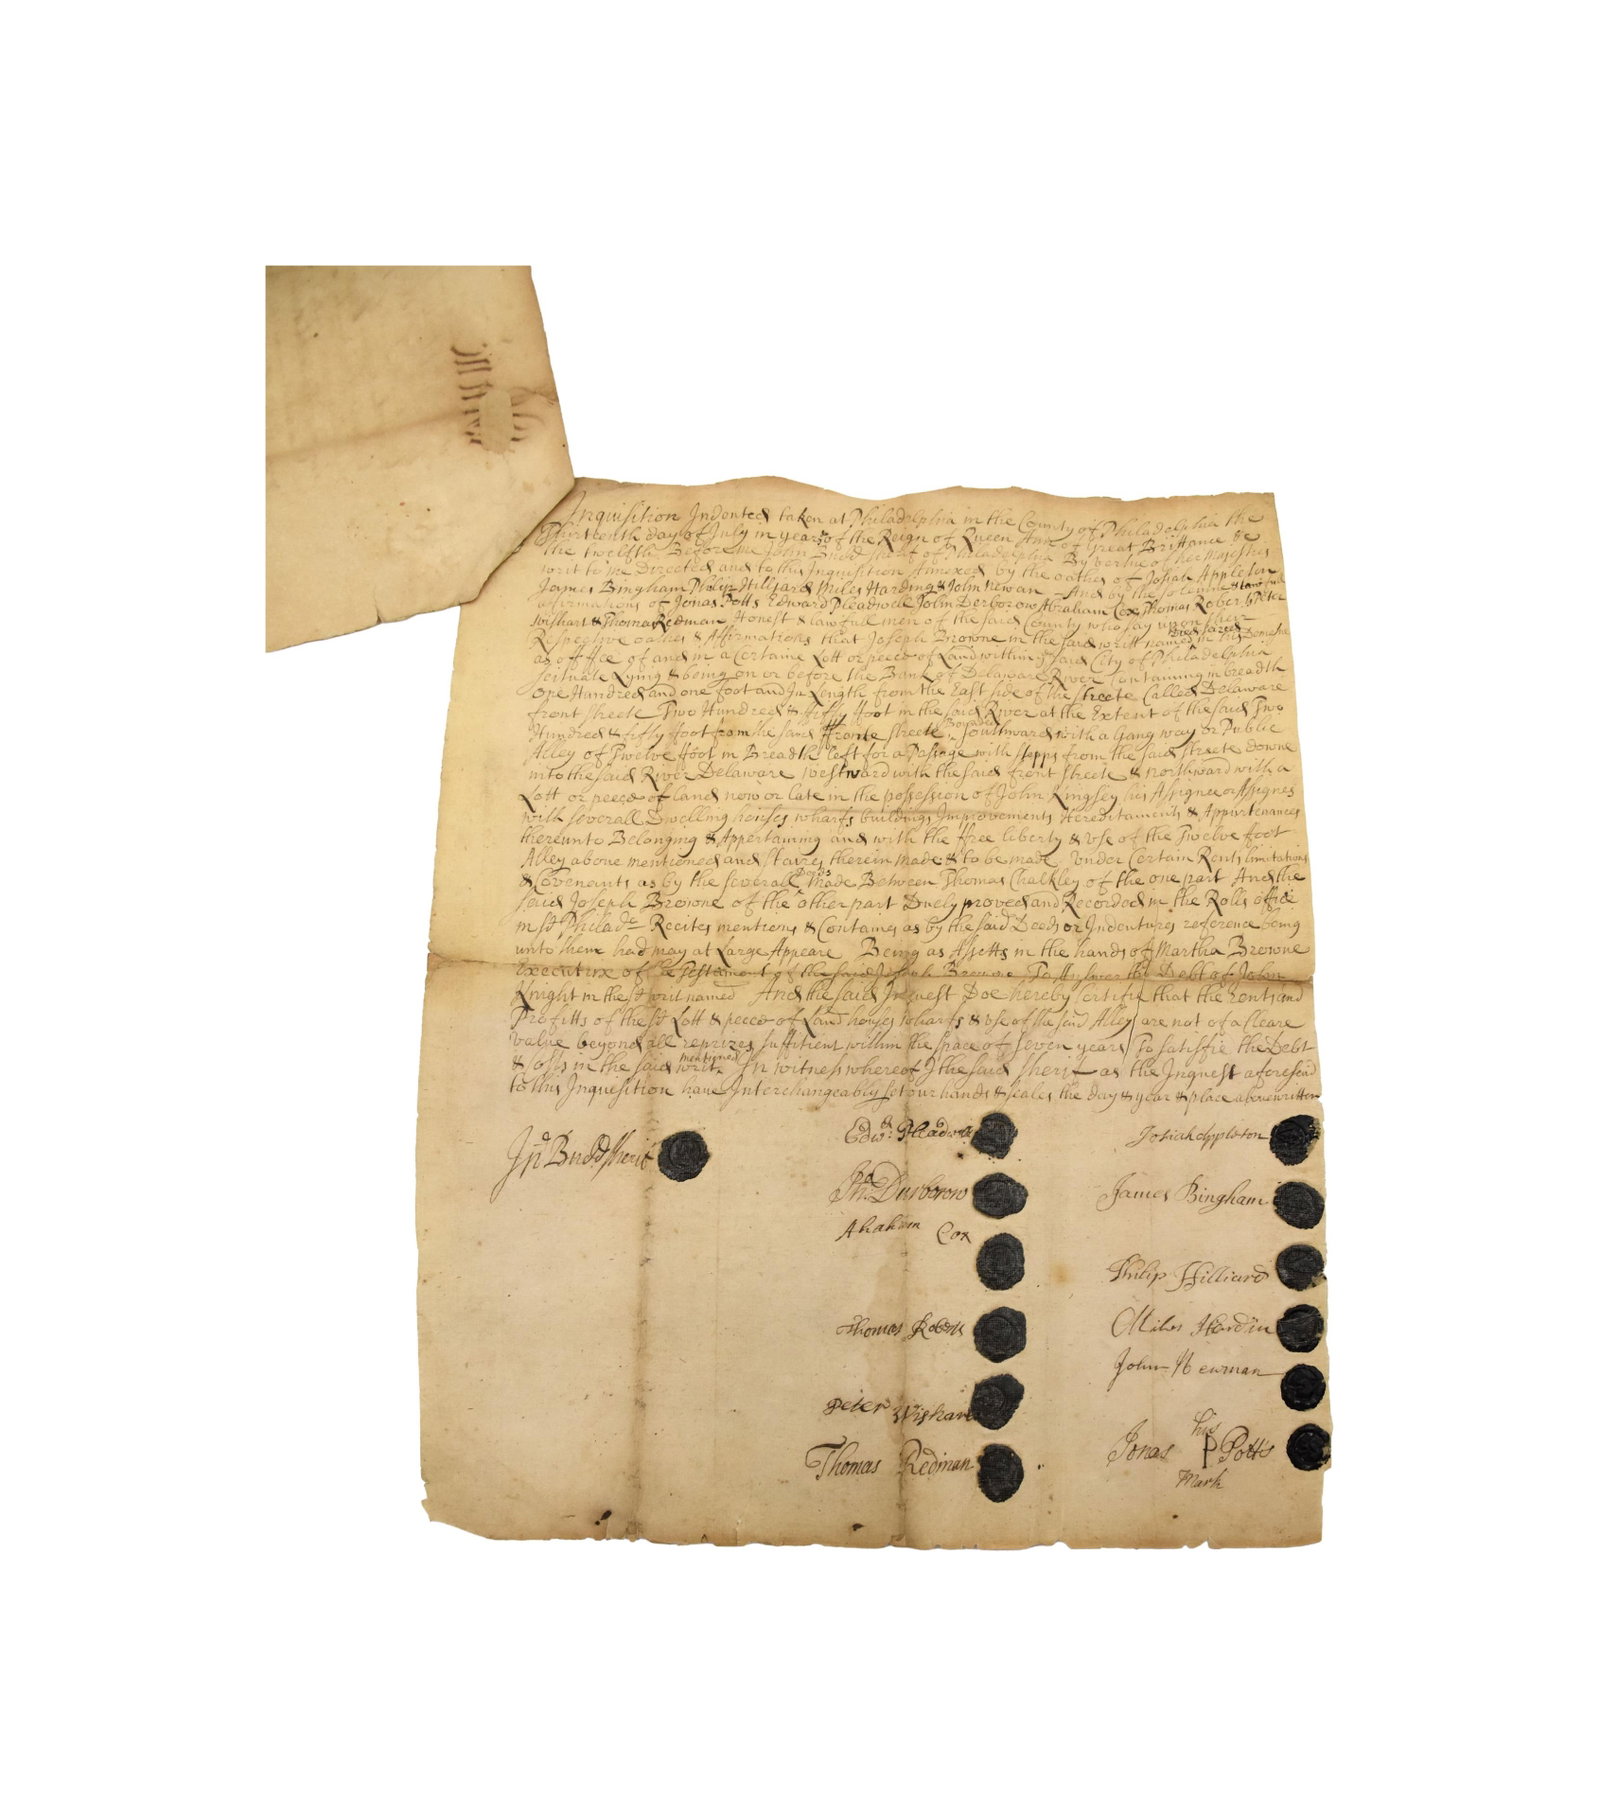 Inquisition Indented taken at Philadelphia in the County of Philadelphia the
Thirteenth day of July in year of the Reign of Queen Ann of Great Brittance &c
the Twelfth. Before me John Budd Sherif of Philadelphia By vertue of her Majesties
writ to me Directed and to this Inquisition Annexed by the oathes of Josiah Appleton
James Bingham Philip Hillyard Miles Harding & John Newan And by the solemne & lawfull
affirmations of Jonas Potts Edward Pleadwell John Derborow Abraham Cox Thomas Roberts Peter
Wishart & Thomas Redman Honest & lawfull men of the said County who say upon their
Respective oathes & Affirmations that Joseph Browne in the said writt named Died seized in his Demesne
as of ffee of and in a Certaine Lott or peece of Land within ye said City of Philadelphia
scituate Lying & being on or before the Bank of Delaware River Containing in breadth
One Hundred and one foot and In Length from the East side of the streete Called Delaware
front streete Two Hundred & fifty ffoot in the said River at the Extent of the said Two
Hundred & fifty foot from the said ffronte streete Bounded Southward with a Gang way or Publie
Alley of Twelve ffoot in Breadth left for a Passage with stepps from the said streete downe
into the said River Delaware westward with the said front streete & northward with a
Lott or peece of land now or late in the possession of John Kingsey his Assignee or Assignes
with severall Dwelling houses wharfs buildings Improvements Hereditaments & Appurtenances
thereunto Belonging & Appertaining and with the ffree liberty & Use of the Twelve foot
Alley above mentioned and staires therein made & to be made Under Certain Rents limitations
& Covenants as by the severall Deeds Made Between Thomas Chalkley of the one part And the
said Joseph Browne of the other part Duely proved and Recorded in the Rolls office
in sd Philade Recites mentions & Containes as by the said Deeds or Indentures reference being
unto them had may at Large Appeare Being as Assetts in the hands of Martha Browne
Executrix of the Testament of the said Joseph Browne To Attisfie the Debt of John
Knight in the sd writ named And the said Inquest Doe hereby Certifie that the rents and
Profitts of the sd Lott & peece of Land houses wharfs & Use of the said Alley are not of a Cleare
value beyond all reprizes suffitient within the space of seven years To satisfie the Debt
& Costs in the said writ mentioned In witness whereof I the said Sherif as the Inquest aforesaid
to this Inquesition have Interchangeably set our hands & seales the day & year & place abovewritten
Jno Budd sherif
Edwd: Pleadwell
Josiah Appleton
Jno. Durborow
James Bingham
Abraham Cox
Philip Hilliard
Thomas Roberts
Miles Hardin
John Newman
Peter Wishart
his
Jonas P Potts
Mark
Thomas Redman